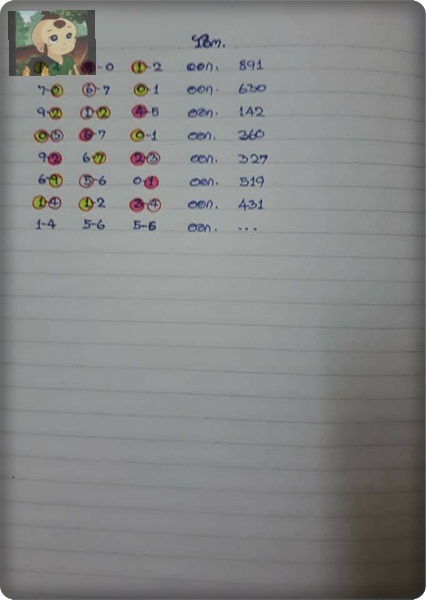 โชค.
-0 1-2 ออก. 891
7-0 6-7 0-1 ออก. 630
9-2 1-2 4-5 ออก. 142
0-5 6-7 0-1 ออก. 360
9-2 6-7 2-3 ออก. 327
6-9 5-6 0-1 ออก. 519
1-4 1-2 3-4 ออก. 431
1-4 5-6 5-6 ออก. ...